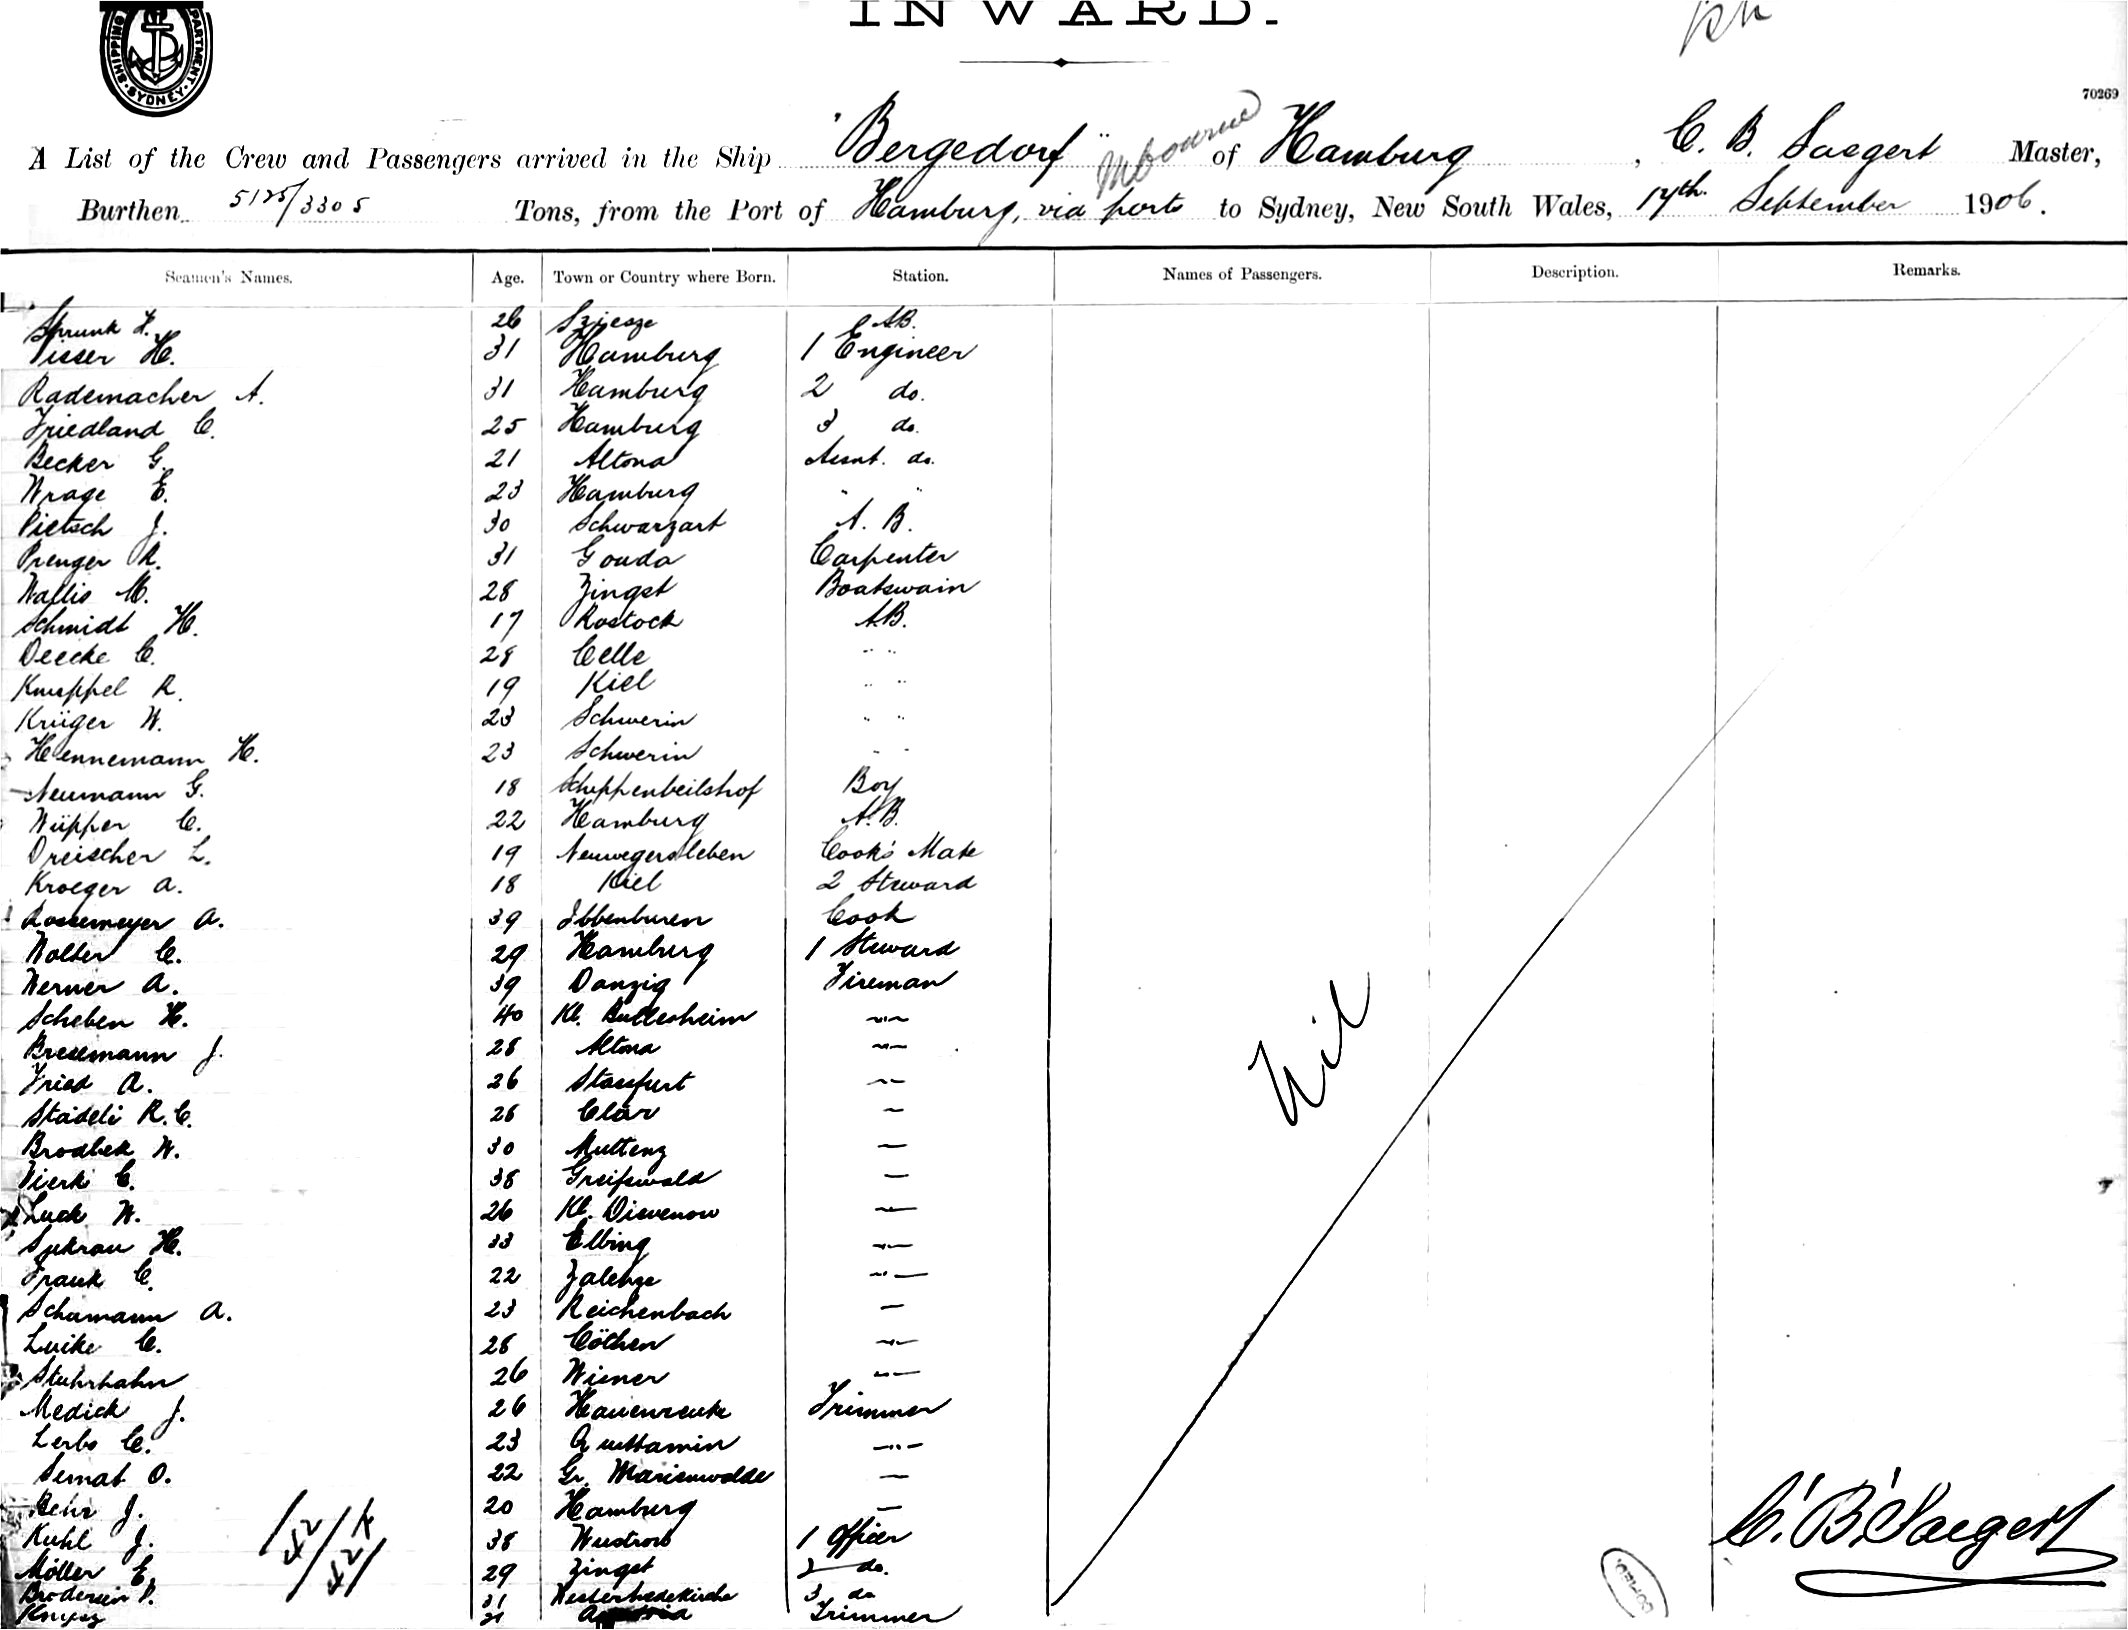 SHIPPING DEPARTMENT SYDNEY
INWARD.
70269
A List of the Crew and Passengers arrived in the Ship "Bergedorf" Mbourne of Hamburg, C. B. Saegert Master,
Burthen 5125/3305 Tons, from the Port of Hamburg, via ports to Sydney, New South Wales, 17th September 1906.
Seamen's Names. Age. Town or Country where Born. Station. Names of Passengers. Description. Remarks.
26 A.B.
Visser H. 31 Hamburg 1 Engineer
Rademacher A. 31 Hamburg 2 do.
Friedland C. 25 Hamburg 3 do.
Becker G. 21 Altona Assnt. do.
Wrage E. 23 Hamburg " "
Pietsch J. 30 Schwarzart A. B.
Prenger R. 31 Gouda Carpenter
Wallis M. 28 Zingst Boatswain
Schmidt H. 17 Rostock A.B.
Deecke C. 28 Celle " "
Knuppel R. 19 Kiel " "
Krüger W. 23 Schwerin " "
Hennemann H. 23 Schwerin " "
Neumann G. 18 Schippenbeilshof Boy
Wüpper C. 22 Hamburg A.B.
Dreischer L. 19 Neuwegersleben Cook's Mate
Kroeger A. 18 Kiel 2 Steward
Rossemeyer A. 39 Ibbenburen Cook
Wolter C. 29 Hamburg 1 Steward
Werner A. 39 Danzig Fireman
Scheben H. 40 Kl. Bullesheim —"—
Bresemann J. 28 Altona —"—
Fried A. 26 Stassfurt —"—
Städeli R. C. 28 —
Brodbek W. 30 Muttenz —
Vierk C. 38 Greifswald —
Luck W. 26 Kl. Dievenow —"—
H. 33 Elbing —"—
Frank C. 22 Zalenze —"—
Schumann A. 23 Reichenbach —
Luike C. 28 Cöthen —"—
Stuhrhahn 26 Wismer —"—
Medick J. 26 Trimmer
Lerbs C. 23 —"—
Semat O. 22 Gr. Marienwalde —
Behr J. 20 Hamburg —
Kuhl J. 38 Wustrow 1 Officer
Möller E. 29 Zingst 2 do.
Brodersen P. 31 3 do
21 Trimmer
Nil
/42/42/
C. B. Saegert